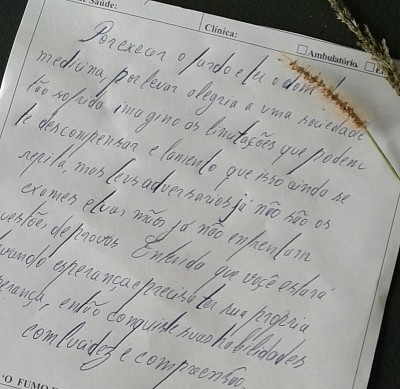 de Saúde:
Clínica:
Ambulatório
Por execer o fardo e leu o dom da
medicina, por levar alegria a uma sociedade
tão sofrida imagino as limitações que podem
te descompensar e lamento que isso ainda se
repita, mas teus adversários já não são os
exames e tuas mãos já não enfrentam
questões de provas. Entenda que você estará
levando esperança e precisa ter sua própria
esperança, então conquiste suas habilidades
com lucidez e compreensão.
"O FUMO